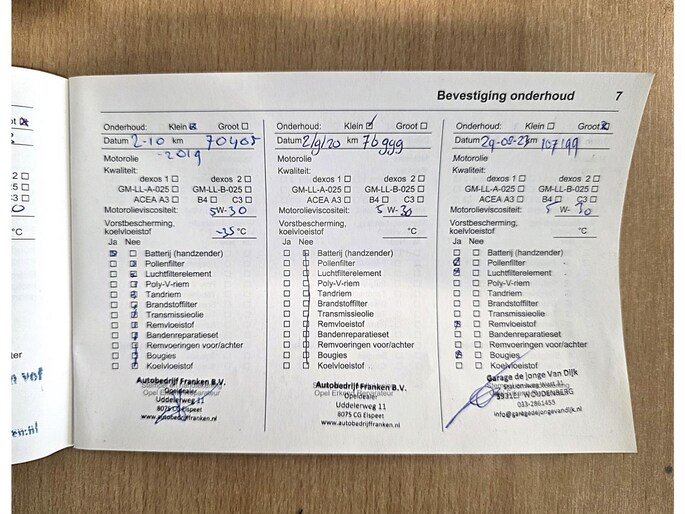 Bevestiging onderhoud 7
Onderhoud: Klein Groot
Datum 2-10 km 70405
-2019
Motorolie
Kwaliteit:
dexos 1 dexos 2
GM-LL-A-025 GM-LL-B-025
ACEA A3 B4 C3
Motorolieviscositeit: 5W-30
Vorstbescherming,
koelvloeistof -35 °C
Ja Nee
Batterij (handzender)
Pollenfilter
Luchtfilterelement
Poly-V-riem
Tandriem
Brandstoffilter
Transmissieolie
Remvloeistof
Bandenreparatieset
Remvoeringen voor/achter
Bougies
Koelvloeistof
Autobedrijf Franken B.V.
Opeldealer
Uddelerweg 11
8075 CG Elspeet
www.autobedrijffranken.nl
Onderhoud: Klein Groot
Datum 2/9/20 km 76999
Motorolie
Kwaliteit:
dexos 1 dexos 2
GM-LL-A-025 GM-LL-B-025
ACEA A3 B4 C3
Motorolieviscositeit: 5 W- 30
Vorstbescherming,
koelvloeistof °C
Ja Nee
Batterij (handzender)
Pollenfilter
Luchtfilterelement
Poly-V-riem
Tandriem
Brandstoffilter
Transmissieolie
Remvloeistof
Bandenreparatieset
Remvoeringen voor/achter
Bougies
Koelvloeistof
Autobedrijf Franken B.V.
Opeldealer
Opel Erkend Reparateur
Uddelerweg 11
8075 CG Elspeet
www.autobedrijffranken.nl
Onderhoud: Klein Groot
Datum km 107199
Motorolie
Kwaliteit:
dexos 1 dexos 2
GM-LL-A-025 GM-LL-B-025
ACEA A3 B4 C3
Motorolieviscositeit: 5 W- 30
Vorstbescherming,
koelvloeistof °C
Ja Nee
Batterij (handzender)
Pollenfilter
Luchtfilterelement
Poly-V-riem
Tandriem
Brandstoffilter
Transmissieolie
Remvloeistof
Bandenreparatieset
Remvoeringen voor/achter
Bougies
Koelvloeistof
Garage de Jonge Van Dijk
Stationsweg West
WOUDENBERG
033-2861455
info@garagedejongevandijk.nl